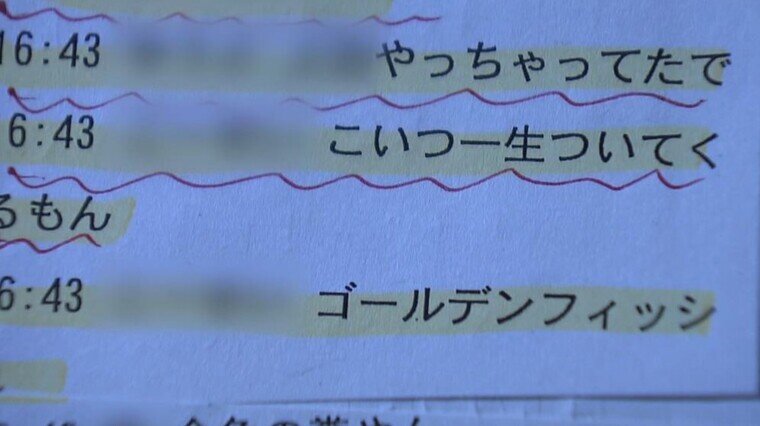 16:43 やっちゃってたで
6:43 こいつ一生ついてく
るもん
6:43 ゴールデンフィッシ